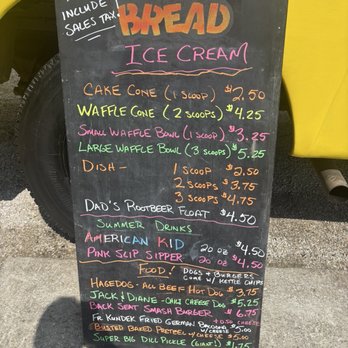 INCLUDE
SALES TAX.
BREAD
ICE CREAM
CAKE CONE (1 SCOOP) $2.50
WAFFLE CONE (2 SCOOPS) $4.25
SMALL WAFFLE BOWL (1 SCOOP) $3.25
LARGE WAFFLE BOWL (3 SCOOPS) $5.25
DISH - 1 SCOOP $2.50
2 SCOOPS $3.75
3 SCOOPS $4.75
DAD'S ROOTBEER FLOAT $4.50
SUMMER DRINKS
AMERICAN KID 20 OZ $4.50
PINK SLIP SIPPER 20 OZ $4.50
FOOD! DOGS & BURGERS
COME W/ KETTLE CHIPS
HAGEDOG - ALL BEEF HOT DOG $3.75
JACK & DIANE - CHILI CHEESE DOG $5.25
BACK SEAT SMASH BURGER $6.75
FR KUNDEK FRIED GERMAN BALOGNE $5.00
BUSTED BAKED PRETZEL W/ CHEESE $5.00
SUPER BIG DILL PICKLE (GIANT)